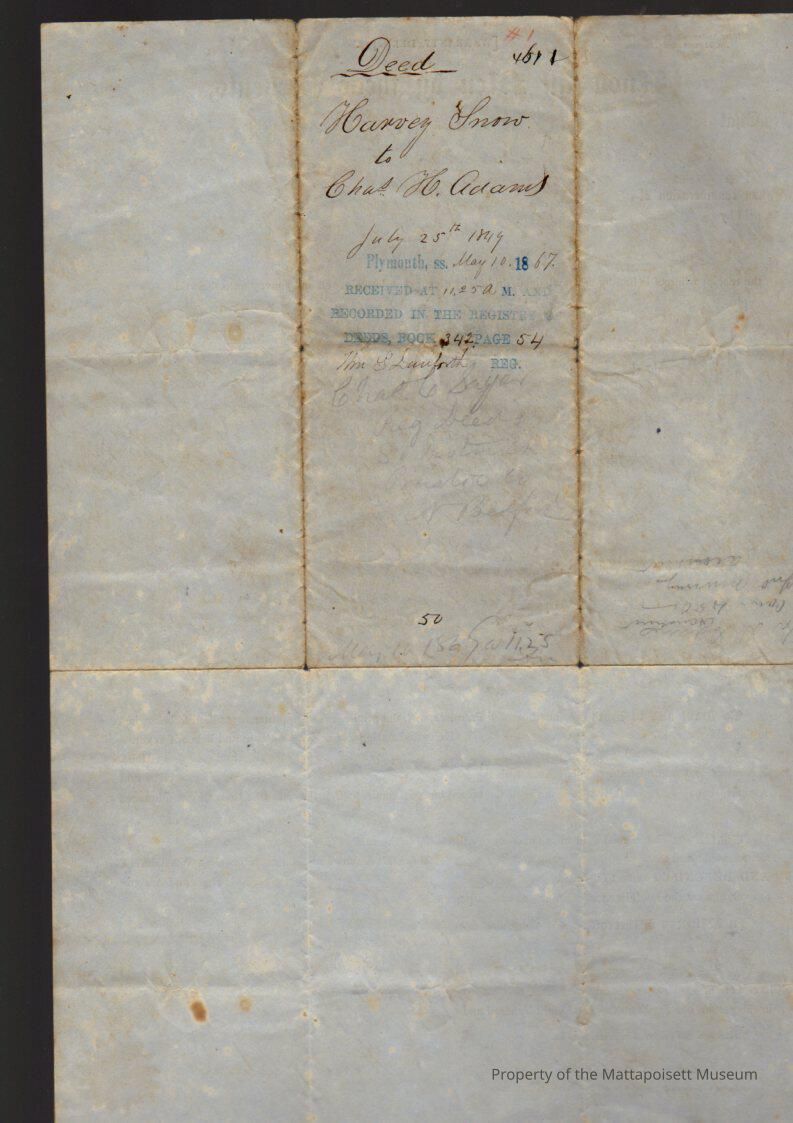 #1
Deed 4611
Harvey Snow
to
Chas. H. Adams
July 25th 1849
Plymouth, ss. May 10. 1867.
RECEIVED AT 11.25 A M. AND
RECORDED IN THE REGISTRY OF
DEEDS, BOOK 342 PAGE 54
Wm S Danforth REG.
Chas C Sayer
Reg Deeds
N Bedford
50
May 10 1867 at 11.25
Property of the Mattapoisett Museum